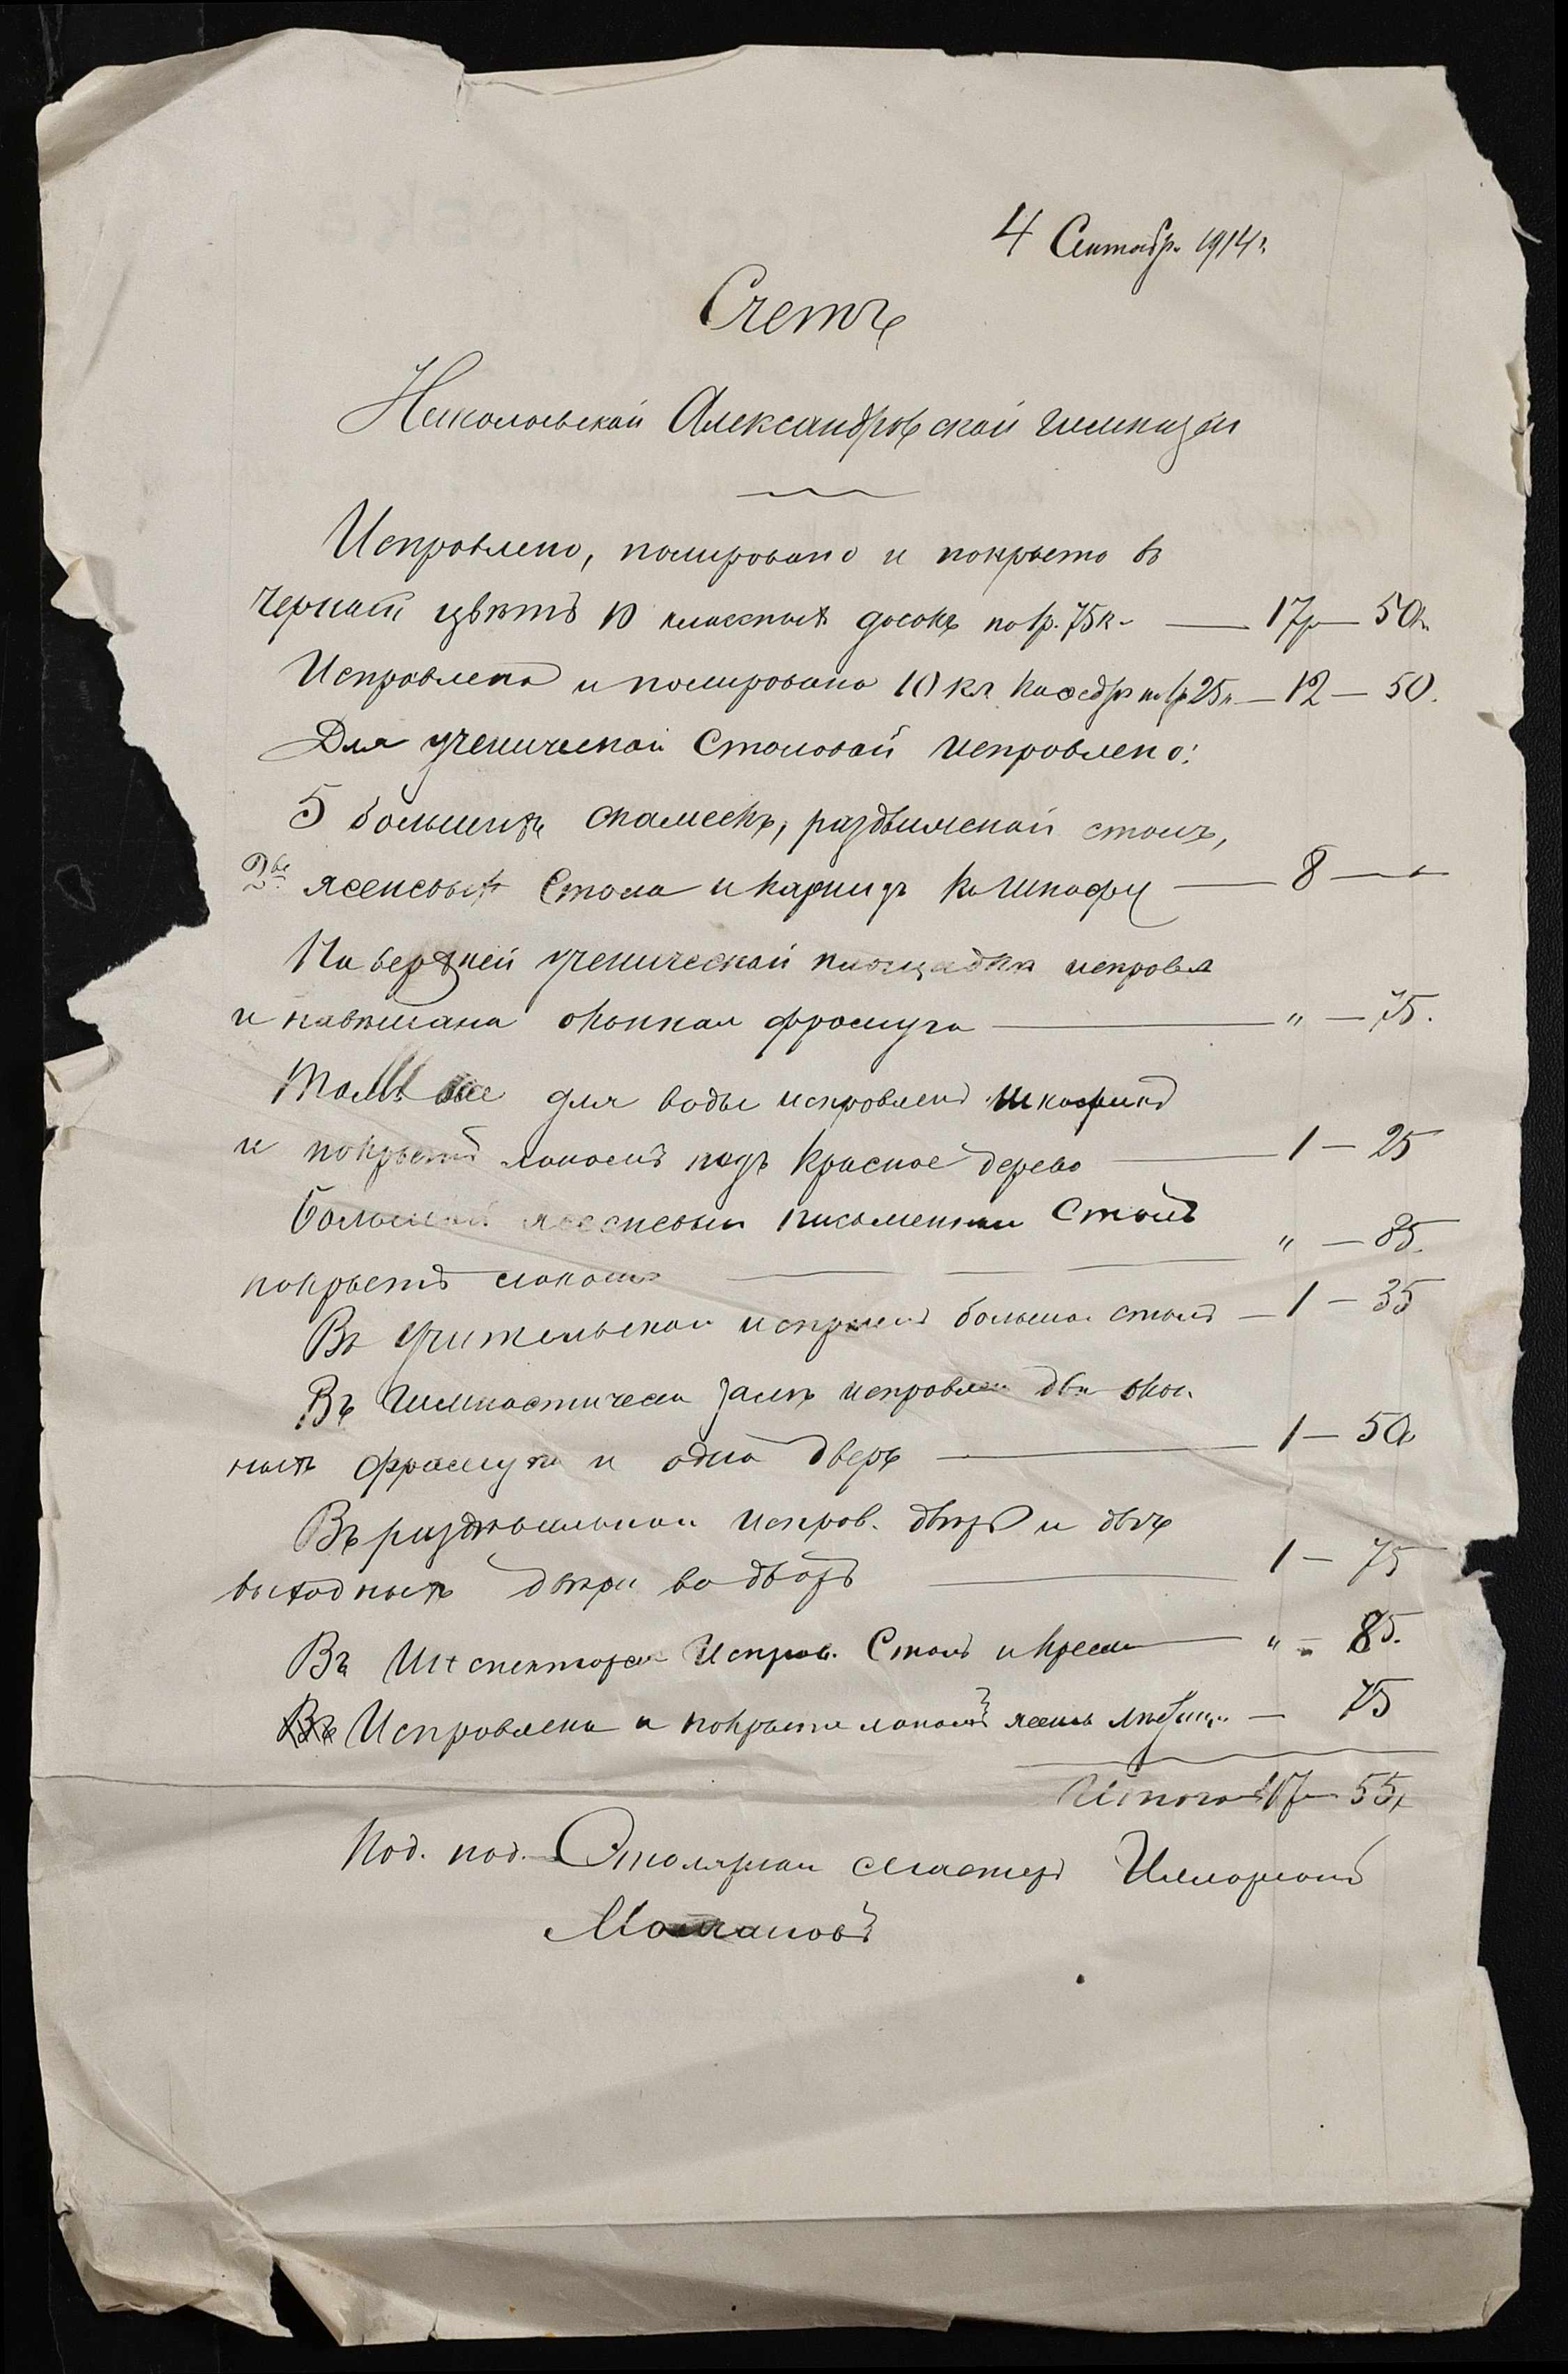 4 Сентябр. 1914 г.
Счетъ
Николаевской Александровской гимназіи
Исправлено, полировано и покрыто въ
черный цвѣтъ 10 классныхъ досокъ по 1р. 75к. — 17р — 50к.
Исправлено и полировано 10 кл кафедръ по 1р 25к — 12 — 50.
Для ученической столовой исправлено:
5 большихъ скамеекъ, раздвижной столъ,
2ве ясеневыхъ стола и карнизъ къ шкафу — 8 —
На верхней ученической площадкѣ исправл
и навѣшана оконная фрамуга — " — 75.
Тамъ же для воды исправленъ шкафикъ
и покрытъ лакомъ подъ красное дерево — 1 — 25
Большой ясеневый письменный столъ
покрытъ лакомъ — " — 85.
Въ учительской исправленъ большой столъ — 1 — 35
Въ гимнастическ залѣ исправлен двѣ окон.
ныхъ фрамуги и одна дверь — 1 — 50
Въ раздѣвальной исправ. дверь и двѣ
выходныхъ двери во дворъ — 1 — 75
Въ Инспекторск Исправ. Столъ и кресл — " — 85.
Исправлена и покрыта лакомъ — 75
Итого 47 — 55к
Под. под. Столярный мастеръ